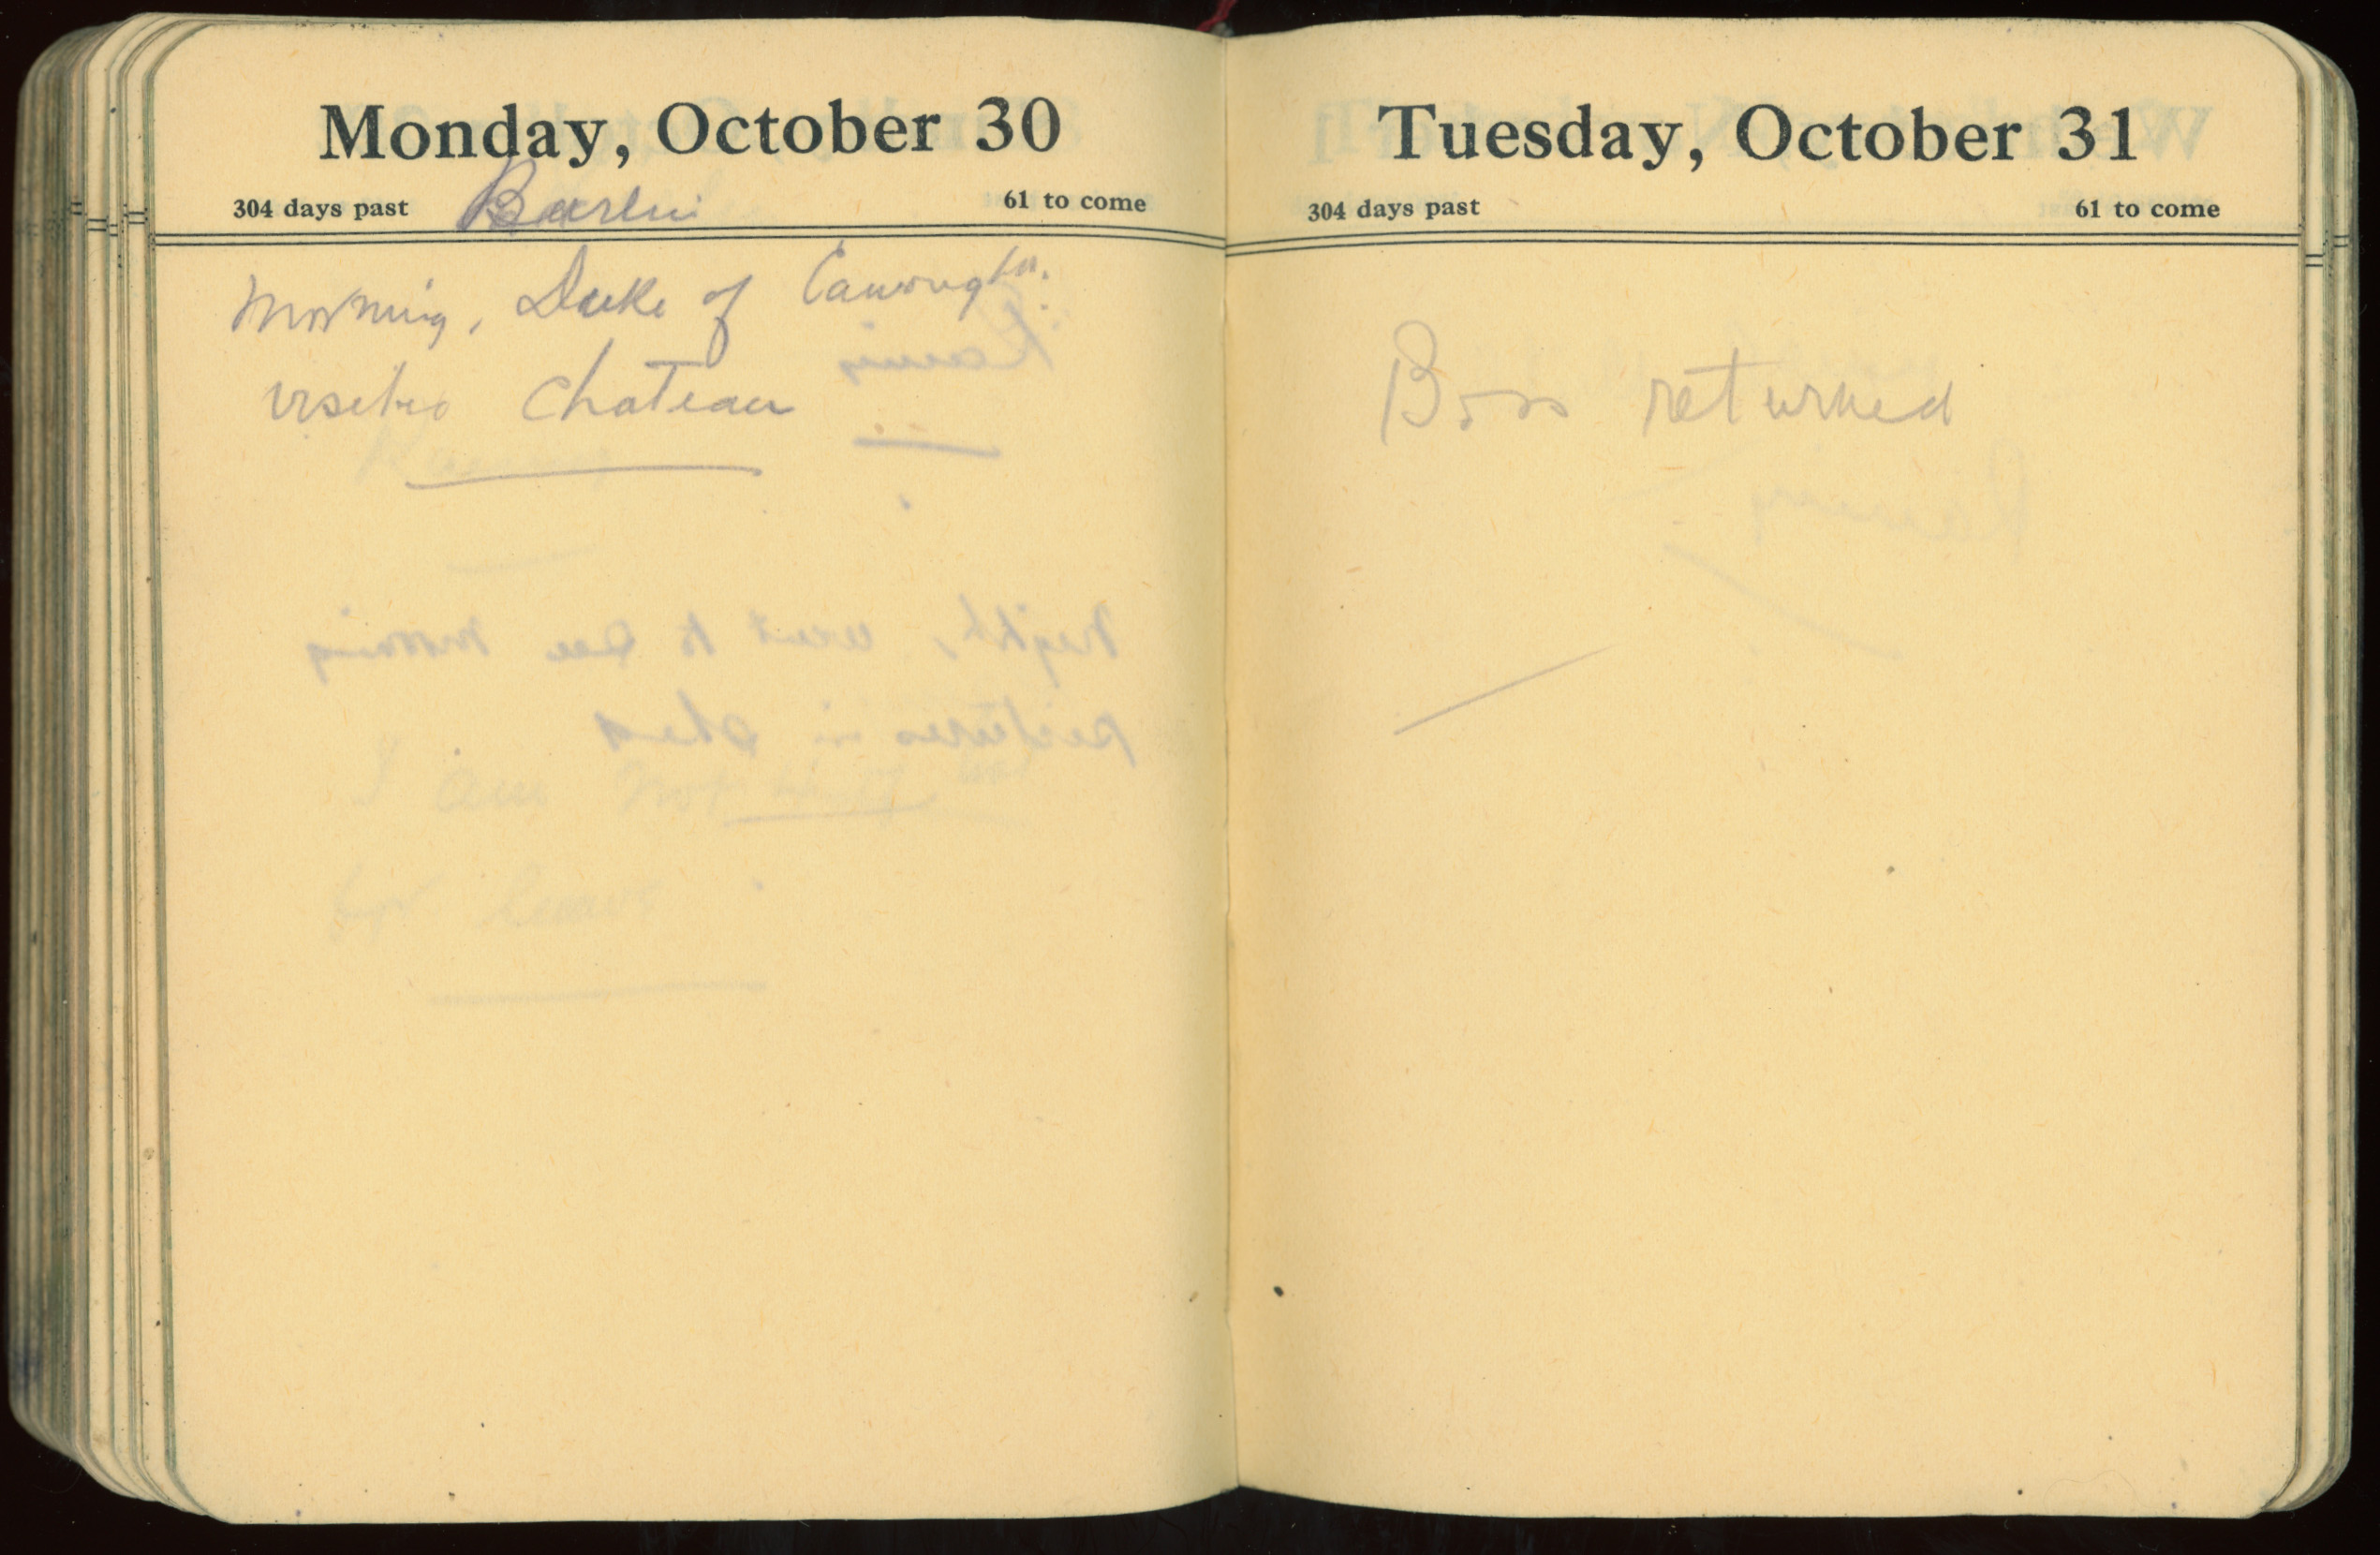 Monday, October 30
304 days past
61 to come
Morning, Duke of
visited Chateau
Tuesday, October 31
304 days past
61 to come
Boss returned